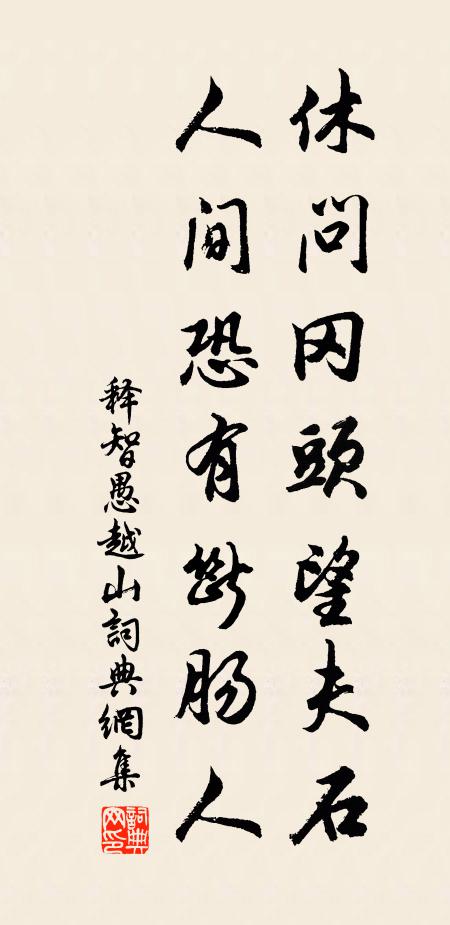 休问冈頭望夫石
人间恐有断肠人
释智愚越山詞典網集
詞典网印